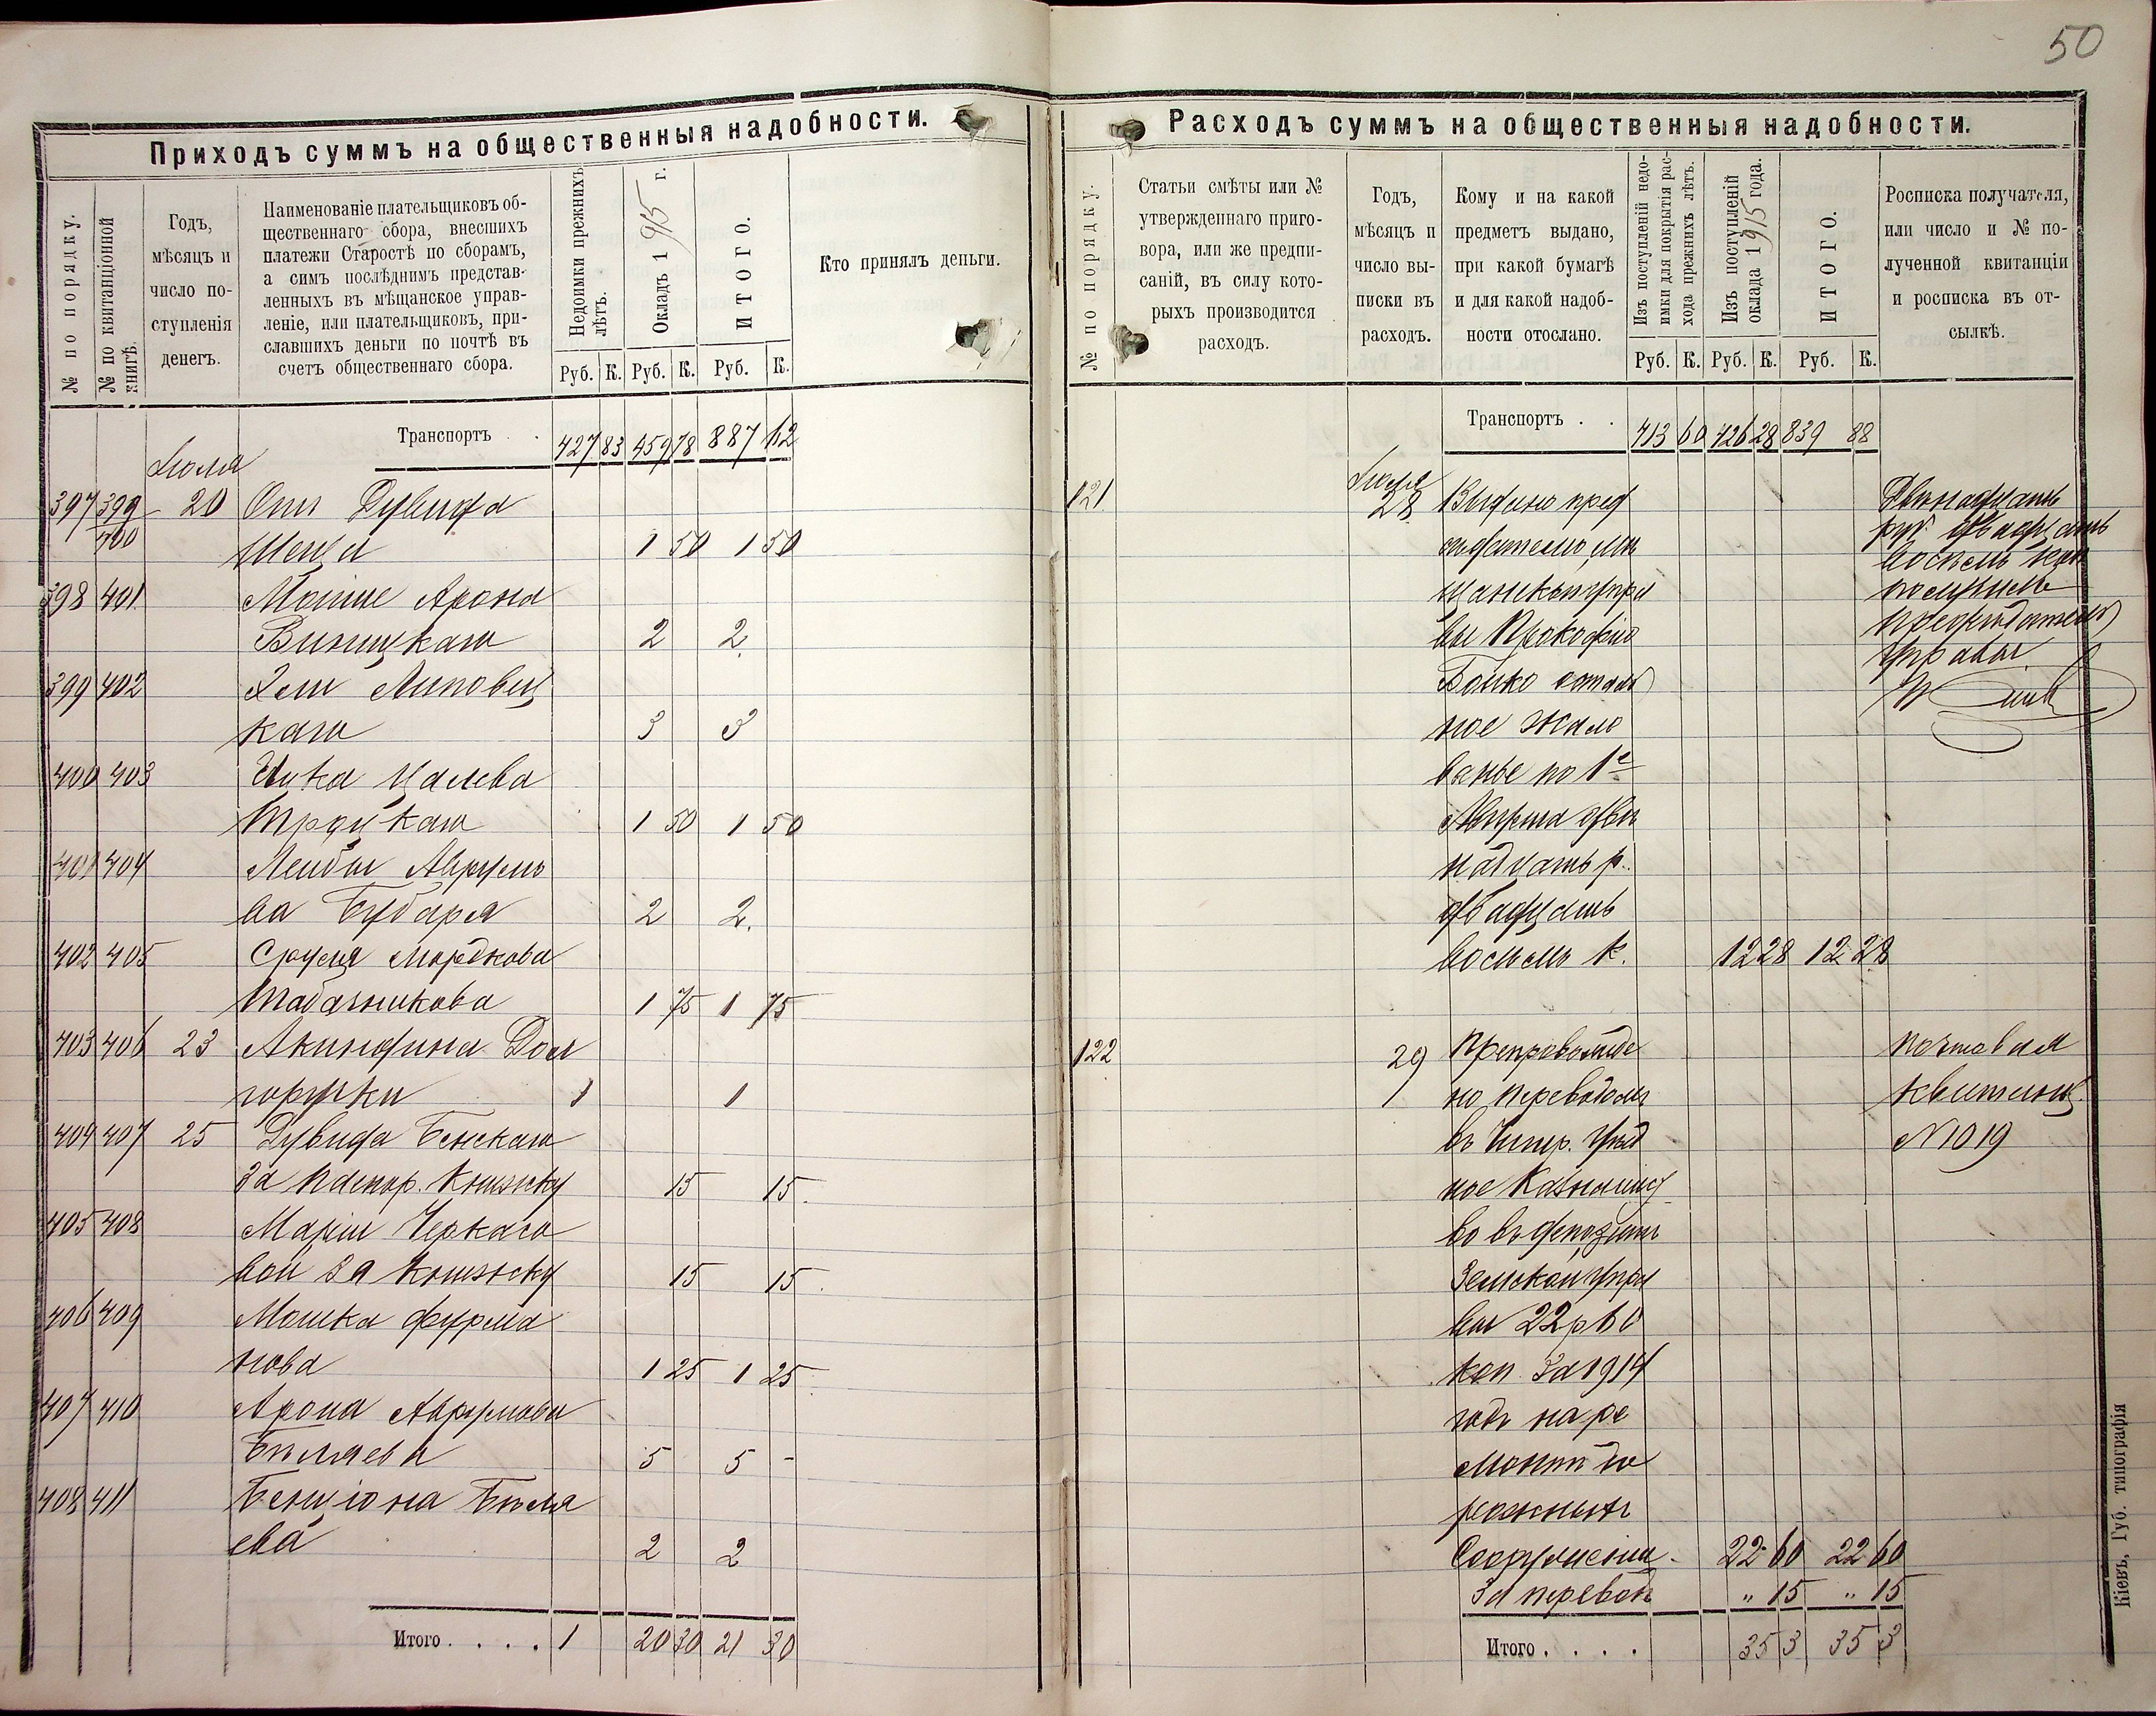 50
Приходъ суммъ на общественныя надобности.
№ по порядку.
№ по квитанціонной книгѣ.
Годъ,
мѣсяцъ и
число по-
ступленія
денегъ.
Наименованіе плательщиковъ об-
щественнаго сбора, внесшихъ
платежи Старостѣ по сборамъ,
а симъ послѣднимъ представ-
ленныхъ въ мѣщанское управ-
леніе, или плательщиковъ, при-
славшихъ деньги по почтѣ въ
счетъ общественнаго сбора.
Недоимки прежнихъ лѣтъ.
Окладъ 1915 г.
ИТОГО.
Кто принялъ деньги.
Руб. К. Руб. К. Руб. К.
Транспортъ . . 427 83 459 78 887 12
Іюля
397 399 20 Ош Дувида
400 Шенца 1 50 1 50
398 401 Мошне Арона
Виницкаго 2 2.
399 402 Хели Липовец
каго 3 3
400 403 Ицка Цалева
Троцкаго 1 50 1 50
401 404 Лейбы Аврумо
ва Бубаря 2 2.
402 405 Сруля Мордкова
Табачникова 1 75 1 75
403 406 23 Акиндина Дол
горуки 1 1
404 407 25 Дувида Бенскаго
За паспор. Книжку 15 15.
405 408 Маріи Черкасо
вой За Книжку 15 15.
406 409 Мошка Фурма
нова 1 25 1 25
407 410 Арона Аврумова
Бѣляева 5 5 -
408 411 Бенціона Бѣля
ева 2 2
Итого . . . . 1 20 30 21 30
Расходъ суммъ на общественныя надобности.
№ по порядку.
Статьи смѣты или №
утвержденнаго приго-
вора, или же предпи-
саній, въ силу кото-
рыхъ производится
расходъ.
Годъ,
мѣсяцъ и
число вы-
писки въ
расходъ.
Кому и на какой
предметъ выдано,
при какой бумагѣ
и для какой надоб-
ности отослано.
Изъ поступленій недо-
имки для покрытія рас-
хода прежнихъ лѣтъ.
Изъ поступленій
оклада 1915 года.
ИТОГО.
Росписка получателя,
или число и № по-
лученной квитанціи
и росписка въ от-
сылкѣ.
Руб. К. Руб. К. Руб. К.
Транспортъ . . 413 60 426 28 839 88
Іюля
121 28 Выдано пред
сѣдателю мѣ
щанской упра
вы Прокофію
Бойко осталь
ное жало
ванье по 1е
Августа двѣ
надцать р.
двадцать
восемь к. 12 28 12 28
Двѣнадцать
руб двадцать
восемь коп
получилъ
предсѣдатель
управы
122 29 Препровожде
но переводомъ
въ Чигир. Уѣзд
ное Казначейст
во въ депозитъ
Земской Упра
вы 22 р 60
коп За 1914
годъ на ре
монтъ до
рожныхъ
Сооруженій 22 60 22 60
За переводъ " 15 " 15
почтовая
квитанц.
№1019
Итого . . . . 35 3 35 3
Кіевъ, Губ. типографія